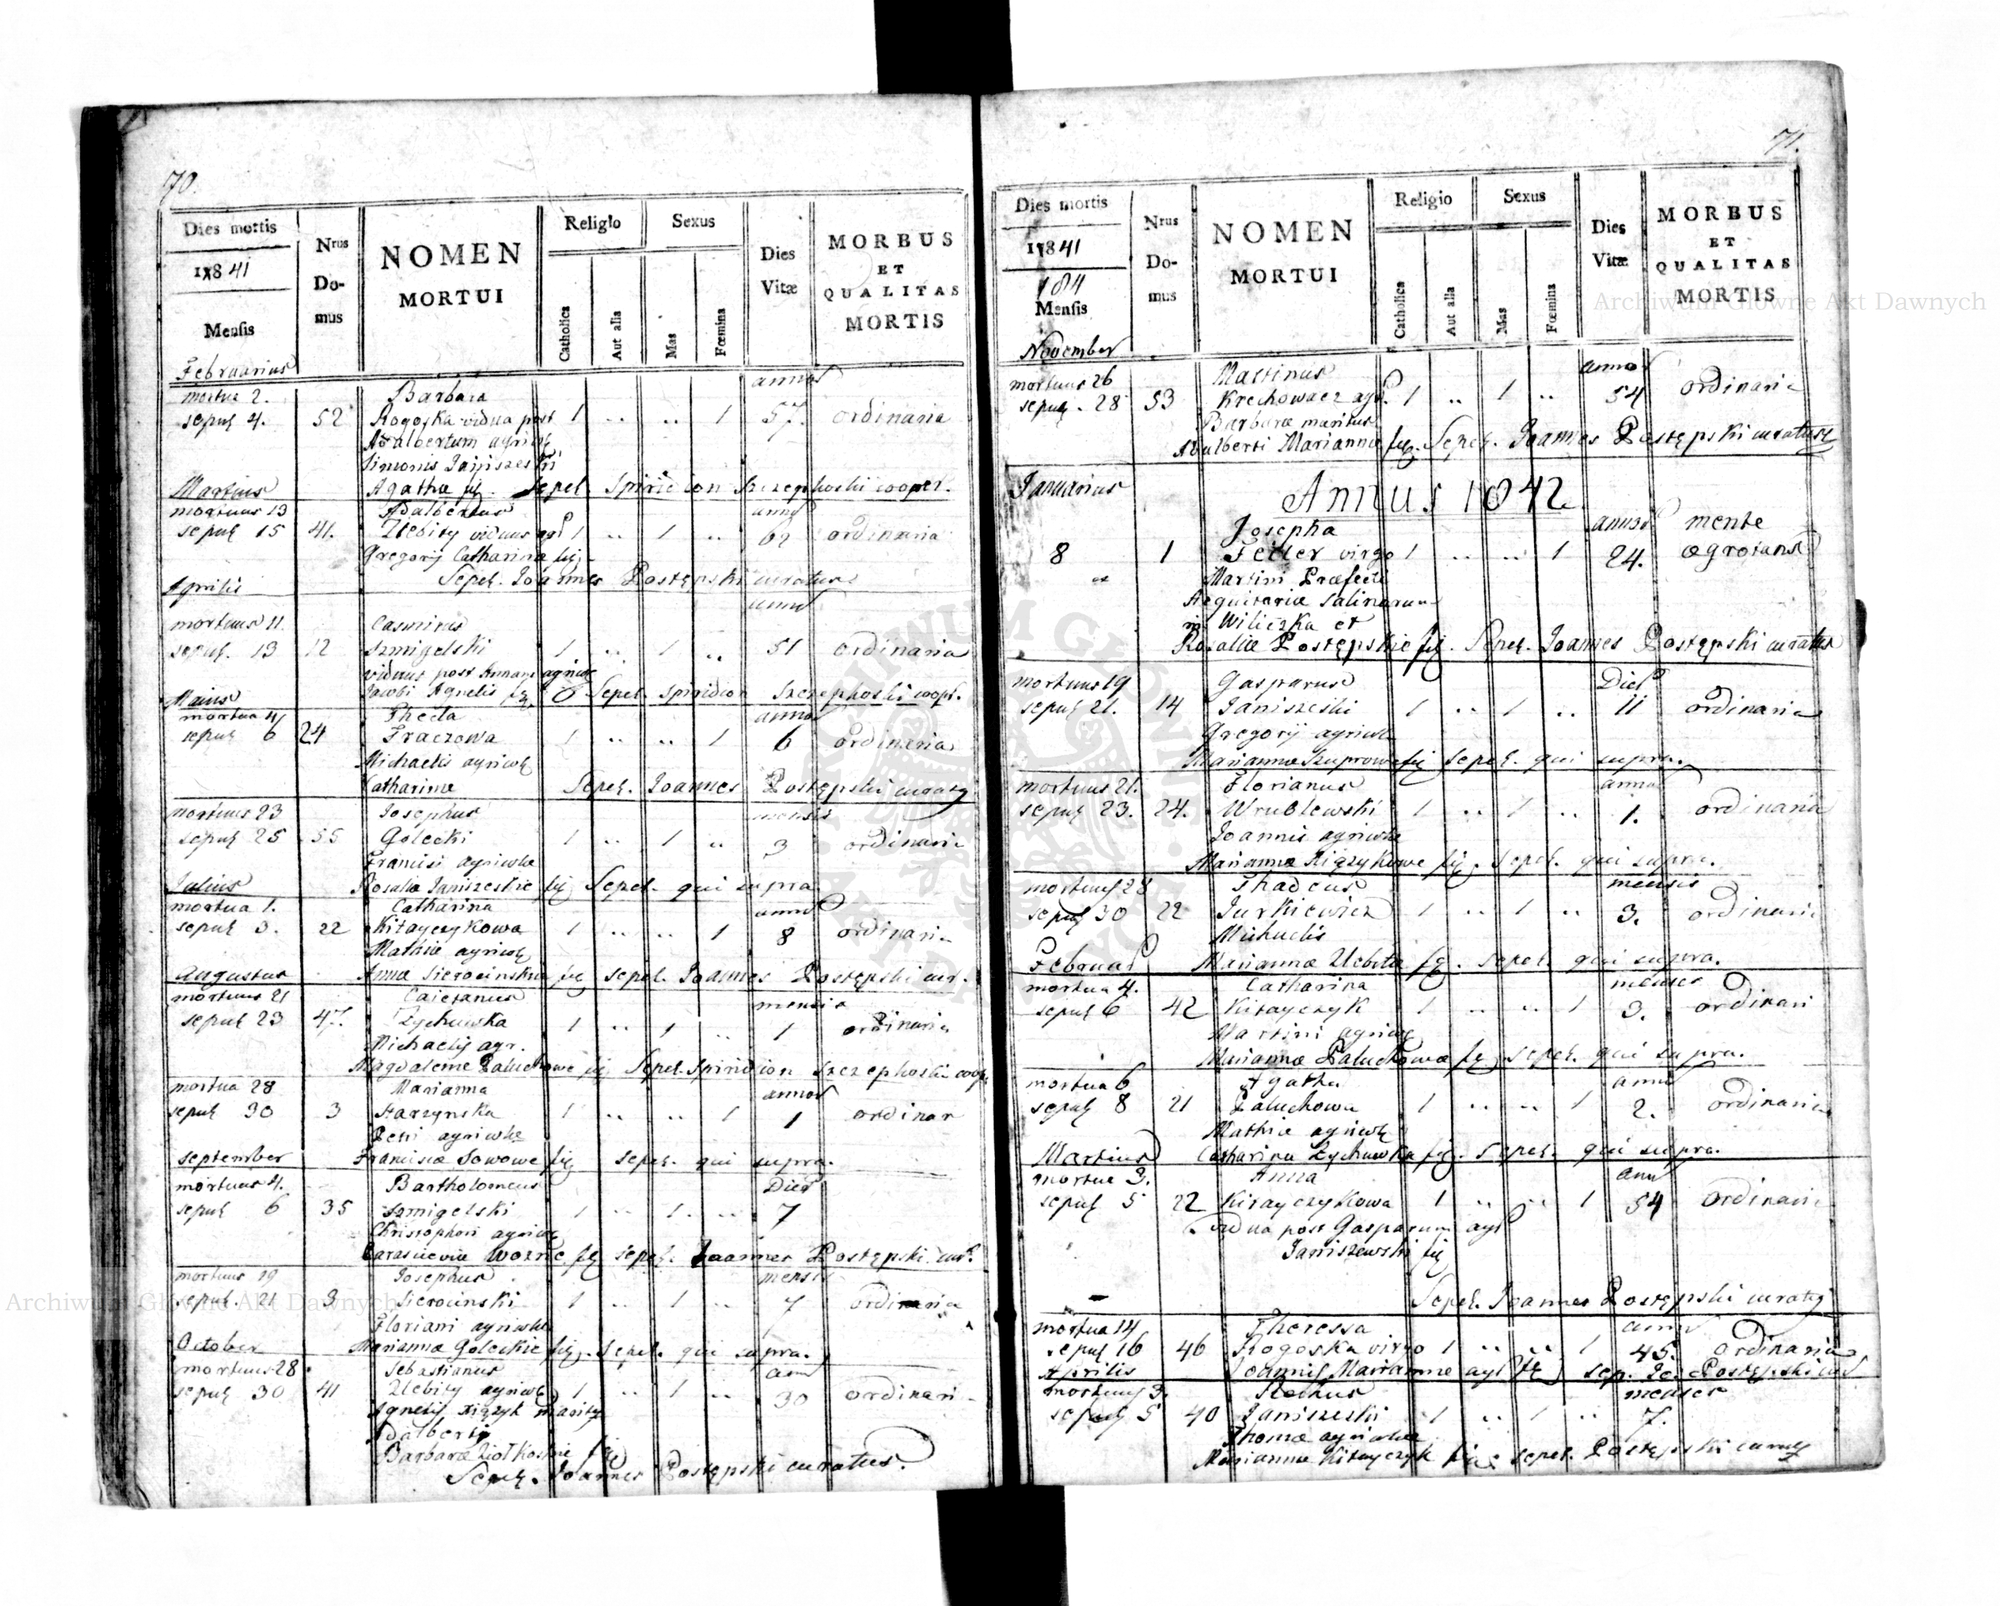 70.
Dies mortis
1841
Mensis
Nrus Domus
NOMEN MORTUI
Religio
Catholica
Aut alia
Sexus
Mas
Fœmina
Dies Vitæ
MORBUS ET QUALITAS MORTIS
Februarius
mortua 2. Barbara annos
sepul 4. 52 Rogoska vidua post 1 .. .. 1 57. ordinaria
Adalbertum agricolæ
Simonis Janiszeski
Martius Agathæ fil. Sepel. Spiridion Szczepkoski cooper.
mortuus 13 Adalbertus annos
sepul 15 41. Zlebity viduus 1 .. 1 .. 62 ordinaria
Gregorij Catharinæ fil.
Aprilis Sepel. Joannes Postępski curatus
mortuus 11. Casmirus annos
sepul. 13 12 Szmigelski 1 .. 1 .. 51 ordinaria
viduus post Annam agricola
Maius Jacobi Agnetis fil. Sepel. Spiridion Szczepkoski coop.
mortua 4 Thecla annos
sepul 6 24 Fraczowa 1 .. .. 1 6 ordinaria
Michaelis agricolæ
Catharinæ Sepel. Joannes Postępski curatus
mortuus 23 Josephus mensis
sepul 25 55 Golecki 1 .. 1 .. 3 ordinari
Francisi agricolæ
Julius Rosaliæ Janiszeskie fil Sepel. qui supra
mortua 1. Catharina annos
sepul 3. 22 Kitayczykowa 1 .. .. 1 8 ordinari
Mathiæ agricolæ
Augustus Annæ Sierocinskie fil sepel. Joannes Postępski cur.
mortuus 21 Caietanus mensis
sepul 23 47. Zychowska 1 .. 1 .. 1 ordinaria
Michaelis agr.
Magdalenæ Paluchowe fil Sepel. Spiridion Szczepkoski coop.
mortua 28 Marianna annos
sepul 30 3 Starzynska 1 .. .. 1 1 ordinar
Petri agricolæ
September Franciscæ Sowowe fil sepel. qui supra.
mortuus 4. Bartholomeus Dies
sepul 6 35 Szmigelski 1 .. 1 .. 7
Christophori agricolæ
Woznie fil sepel. Joannes Postępski cur.
mortuus 19 Josephus mensis
sepul. 21 3 Sierocinski 1 .. 1 .. 7 ordinaria
Floriani agricolæ
October Mariannæ Goleckie fil. Sepel. qui supra.
mortuus 28 Sebastianus ann
sepul 30 41 Zlebity agricola 1 .. 1 .. 30 ordinari
Agnetis Xiązyk maritus
Adalberti
Barbaræ Ziolkoskie fil
Sepel. Joannes Postępski curatus.
71.
Dies mortis
1841
1841
Mensis
Nrus Domus
NOMEN MORTUI
Religio
Catholica
Aut alia
Sexus
Mas
Fœmina
Dies Vitæ
MORBUS ET QUALITAS MORTIS
November
mortuus 26 Martinus annos
sepul. 28 53 Krechowacz agr. 1 .. 1 .. 54 ordinaria
Barbaræ maritus
Adalberti Mariannæ fil. Sepel. Joannes Postępski curatus
Januarius Annus 1842
Josepha annos mente
8 1 Feiler virgo 1 .. .. 1 24. ægrotans
Martini Præfecti
Requitariæ Salinarum
in Wiliczka et
Rosaliæ Postępskie fil. Sepel. Joannes Postępski curatus
mortuus 19 Gasparus Dies
sepul 21. 14 Janiszeski 1 .. 1 .. 11 ordinaria
Gregorij agricolæ
Mariannæ Szuprowe fil sepel. qui supra.
mortuus 21. Florianus annos
sepul 23. 24. Wrublewski 1 .. 1 .. 1. ordinaria
Joannis agricolæ
Mariannæ Xiązykowe fil. Sepel. qui supra.
mortuus 28 Thadeus mensis
sepul 30 22 Jurkiewicz 1 .. 1 .. 3. ordinari
Michaelis
Februar Mariannæ Zlebita fil. sepel. qui supra.
mortua 4. Catharina menses
sepul 6 42 Kitayczyk 1 .. .. 1 3. ordinari
Martini agricolæ
Mariannæ Paluchowæ fil sepel. qui supra.
mortua 6 Agatha annos
sepul 8 21 Paluchowa 1 .. .. 1 2. ordinaria
Mathiæ agricolæ
Martius Catharinæ Zychowska fil. sepel. qui supra.
mortua 3. Anna ann
sepul 5 22 Kitayczykowa 1 .. .. 1 54 ordinari
vidua post Gasparum agr
Janiszewski fil
Sepel. Joannes Postępski curatus
mortua 14 Theressa annos
sepul 16 46 Rogoska virgo 1 .. .. 1 45. ordinaria
Aprilis Joannis Mariannæ agr fil sep. Jo. Postępski cur
mortuus 3. Rochus menses
sepul 5 40 Janiszeski 1 .. 1 .. 7.
Thomæ agricolæ
Mariannæ Kitayczyk fil: sepel. Postępski curatus
Archiwum Główne Akt Dawnych
Archiwum Główne Akt Dawnych